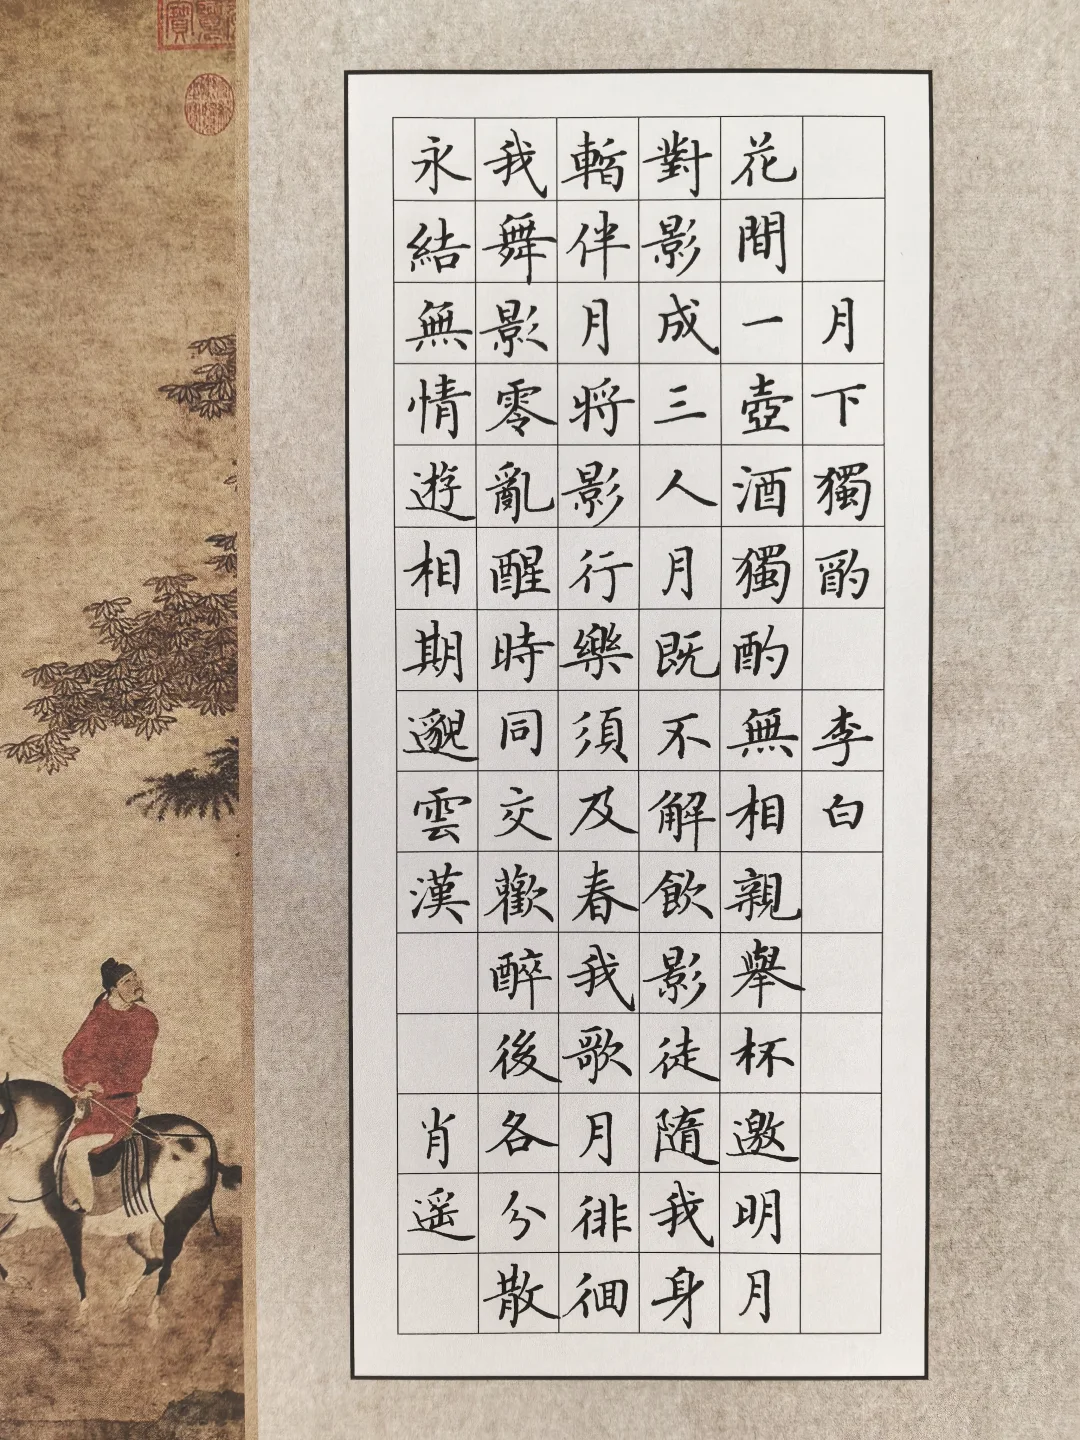 月下獨酌 李白
花間一壺酒獨酌無相親舉杯邀明月
對影成三人月既不解飲影徒隨我身
暫伴月將影行樂須及春我歌月徘徊
我舞影零亂醒時同交歡醉後各分散
永結無情遊相期邈雲漢 肖遥